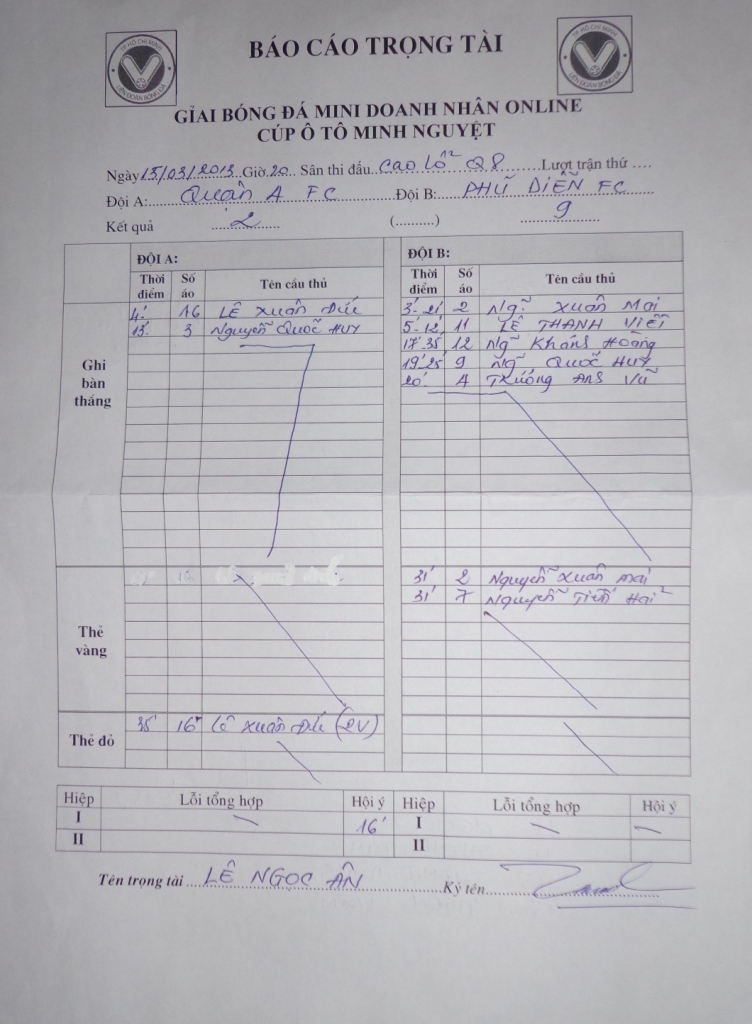 TP HỒ CHÍ MINH
LIÊN ĐOÀN BÓNG ĐÁ
BÁO CÁO TRỌNG TÀI
TP HỒ CHÍ MINH
LIÊN ĐOÀN BÓNG ĐÁ
GIẢI BÓNG ĐÁ MINI DOANH NHÂN ONLINE
CÚP Ô TÔ MINH NGUYỆT
Ngày 15/03/2013 Giờ 20 Sân thi đấu Cao Lỗ Q8 Lượt trận thứ ....
Đội A: Quận 4 FC Đội B: PHÚ DIỄN FC
Kết quả 2 (..........) 9
ĐỘI A: ĐỘI B:
Thời điểm Số áo Tên cầu thủ Thời điểm Số áo Tên cầu thủ
Ghi bàn thắng
4' 16 LÊ Xuân Đức 3'-21' 2 Ng~ Xuân Mai
13' 3 Nguyễn Quốc HUY 5'-12' 11 LÊ THANH VIỄN
17'-35' 12 Ng~ Khánh Hoàng
19'-25' 9 Ng~ Quốc HUY
20' 4 Trương Anh Vũ
Thẻ vàng
31' 2 Nguyễn Xuân Mai
31' 7 Nguyễn Tiến Hải
Thẻ đỏ
35' 16 Lê Xuân Đức (2V)
Hiệp Lỗi tổng hợp Hội ý Hiệp Lỗi tổng hợp Hội ý
I — 16' I — —
II II
Tên trọng tài LÊ NGỌC ÂN Ký tên